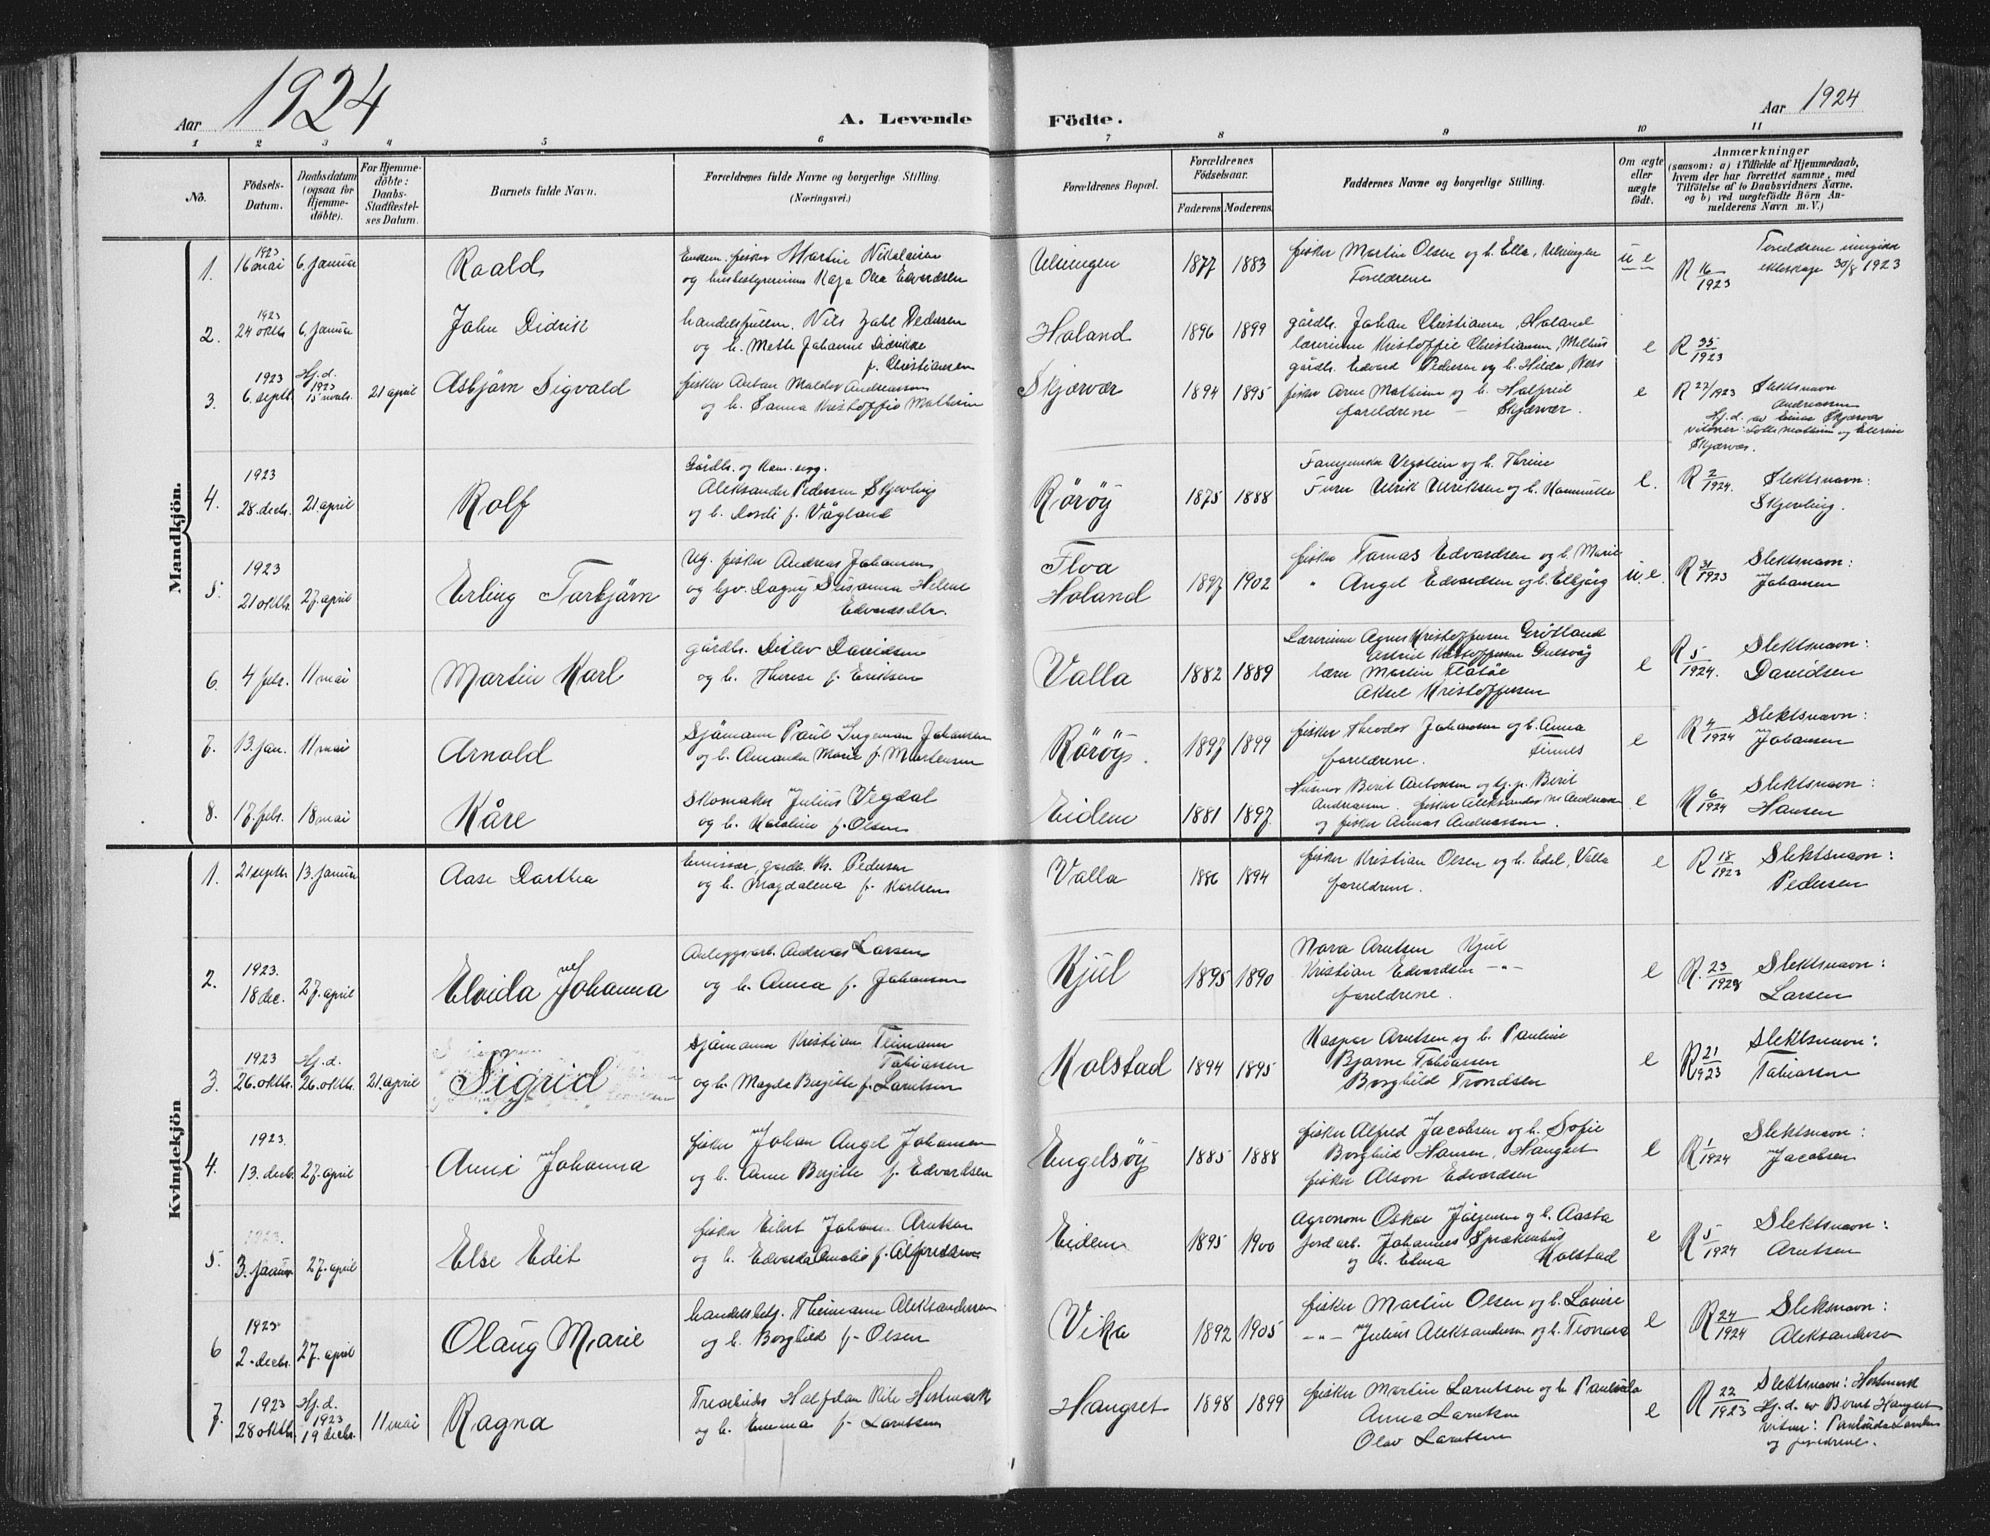 Aar 1924
A. Levende Födte.
Aar 1924
1 2 3 4 5 6 7 8 9 10 11
No.
Födsels-Datum.
Daabsdatum (ogsaa for Hjemme-döbte).
For Hjemme-döbte: Daabs-Stadfæstel-ses Datum.
Barnets fulde Navn.
Forældrenes fulde Navne og borgerlige Stilling.
(Næringsvei.)
Forældrenes Bopæl.
Forældrenes Födselsaar.
Faderens. Moderens.
Faddernes Navne og borgerlige Stilling.
Om ægte eller uægte födt.
Anmærkninger
(saasom: a) i Tilfælde af Hjemmedaab,
hvem der har forrettet samme, med
Tilföielse af to Daabsvidners Navne,
og b) ved uægtefödte Börn An-
melderens Navn m. V.)
Mandkjön.
1. 1923 16 mai 6 januar Roald
Martin Nikolaisen
og husbestyrerinne Kaja Olea Edvardsen
Ulvingen 1877 1883
fisker Martin Olsen og h. Ella, Ulvingen
Foreldrene
u e R 16/1923
Foreldrene inngikk
ekteskap 30/8 1923
2. 1923 24 oktb. 6 januar John Didrik
Nils Pedersen
og h. Mette Johanne Didrikke
f. Christiansen
Holand 1896 1899
gårdb. Johan Christiansen, Holand
lærerinne Kristoffie Christiansen,
gårdb. Edvard Pedersen og h. Hilda,
e R 35/1923
3. 1923 6. septb. Hj.d. 1923 21 april Asbjørn Sigvald
fisker Anton Maldor Andreassen
og h. Sanna Kristoffia
Skjærvær 1894 1895
fisker Arne Mathisen og h. Halfrid
foreldrene — Skjærvær.
e R 27/1923 Slektsnavn
Andreassen
Hj.d. av Einar Skjærvær
vidner:
Skjærvær.
4. 1923 28. decb. 21 april Rolf
Gårdb. og
Aleksander Pedersen Skjevling
og h. Dordi f. Vågland
Rørøy 1875 1888
Vegstein og h. Thrine
Ulrik Ulriksen og h.
e. R 2/1924. Slektsnavn:
Skjevling.
5. 1923 21 oktb. 27. april Erling Torbjørn
Ug. fisker Andreas Johansen
og Dagny Susanna Helene
Edvardsdtr.
Flva
Holand 1897 1902
fisker Tomas Edvardsen og h. Marie
" Angel Edvardsen og h. Elbjørg
u e. R 31/1923 Slektsnavn:
Johansen
6. 4 febr. 11 mai Martin Karl
gårdb. Ditlev Davidsen
og h. Therese f. Eriksen
Valla 1882 1889
Lærerinne Agnes Kristoffersen Grøtland
Astrid Kristoffersen Gulsvåg
lærer Martin Flatøe
Aksel Kristoffersen
e R 5/1924. Slektsnavn:
Davidsen
7. 13. jan. 11 mai Arnold
Sjømann Paul Ingeman Johansen
og h. Amanda Marie f. Mortensen
Rørøy. 1897 1899
fisker Theodor Johansen og h. Anna
Finnes
foreldrene.
e R 4/1924 Slektsnavn:
Johansen
8. 17. febr. 18 mai Kåre
Skomaker Julius Vegdal
og h. Karoline f. Olsen
Eidem 1881 1897.
Berit Antonsen og Berit
Andreassen. fisker Aleksander
og fisker Annas Andreassen.
e R 6/1924 Slektsnavn:
Hansen
Kvindekjön
1. 21 septb. 13. januar Aase Dorthea
Emissær, gårdb. Pedersen
og h. Magdalena f. Karlsen
Valla 1886 1894
fisker Kristian Olsen og h. Edel, Valla
foreldrene.
e R 18/1923 Slektsnavn:
Pedersen
2. 1923. 18 dec. 27. april Elvida Johanna
Anleggsarb. Andreas Larsen
og h. Anna f. Johansen
Kjul 1895 1890
Nora Arntsen Kjul
Kristian Edvardsen -"-
foreldrene.
e R. 23/1923 Slektsnavn:
Larsen
3. 1923 26. oktb. Hj.d. 26. oktb. 21 april Sigrid
Sjømann Kristian Teimann
Tobiassen
og h. Magda Birgitte f. Lorntsen
Kolstad 1894 1895
Kaspar Arntsen og h. Pauline
Bjarne Tobiassen
Borghild Trondsen
e R 21/1923 Slektsnavn:
Tobiassen
4. 1923. 13. decb. 27. april Anni Johanna
fisker Johan Angel Johansen
og h. Anne Bergitte f. Edvardsen
Engelsøy 1885 1888
fisker Alfred Jacobsen og h. Sofie
Borghild Hansen, Haugset
fisker Alson Edvardsen
e R 1/1924 Slektsnavn:
Jacobsen
5. 1923. 3. januar 27. april Else Edit
fisker Eilert Johan Arntsen
og h. Edvarda Amalie f. Alfredsen
Eidem 1895 1900
Agronom Oskar Jørgensen og h. Aasta
jordarb. Johannes Sprækenhus
og h. Elma Kolstad
e R 5/1924 Slektsnavn:
Arntsen
6 1923 2. decbr. 27. april Olaug Marie
handelsbetj. Theimann Aleksandersen
og h. Borghild f. Olsen
Vika 1892 1905
fisker Martin Olsen og h. Lovise
-"- Julius Aleksandersen og h. Teonora
e R 24/1924 Slektsnavn:
Aleksandersen
7. 1923 28 oktb. Hj.d. 1923 19 decbr. 11 mai Ragna
Halfdan Hestmark
og h. Emma f. Lorntsen
Haugset 1898 1899
fisker Martin Lorntsen og h. Paulida
Anna Lorntsen
Olav Lorntsen
e R 22/1923 Slektsnavn: Hestmark
Hj.d. av Berit Haugset
vitner: Paulida Lorntsen
og foreldrene.